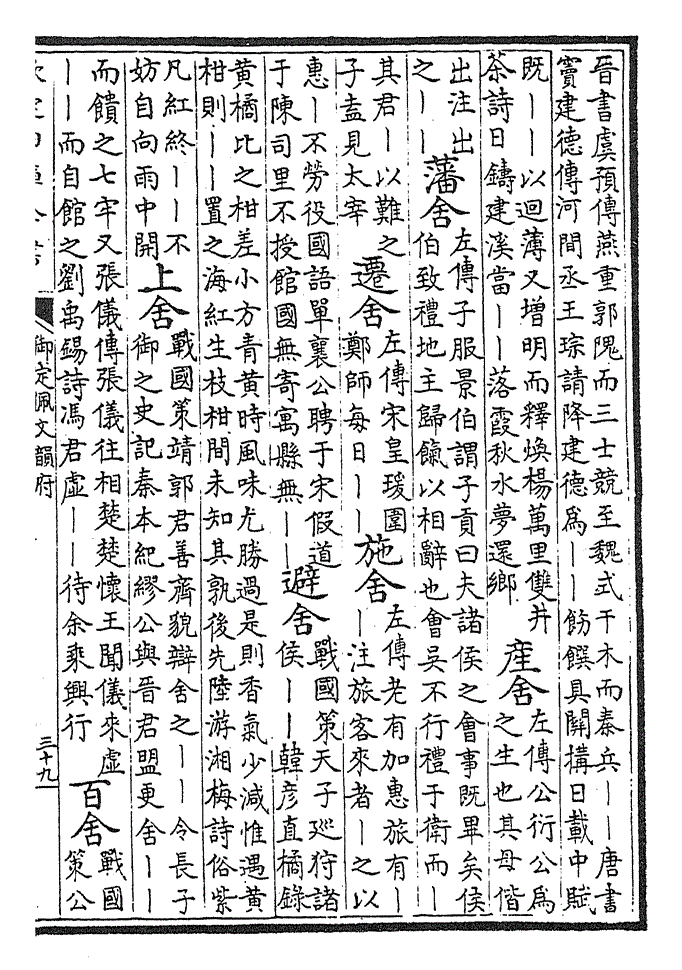 晉書虞預傳燕重郭隗而三士競至魏式干木而秦兵丨丨唐書
竇建德傳河間丞王琮請降建德爲丨丨飭饌具開搆日載中賦
旣丨丨以迴薄又增明而釋煥楊萬里雙井
茶詩曰鑄建溪當丨丨落霞秋水夢還鄉
産舍
左傳公衍公爲
之生也其母偕
出注出
之丨丨
藩舍
左傳子服景伯謂子貢曰夫諸侯之會事旣畢矣侯
伯致禮地主歸餼以相辭也會吳不行禮于衛而丨
其君丨以難之
子盍見太宰
遷舍
左傳宋皇瑗圍
鄭師每日丨丨
施舍
左傳老有加惠旅有丨
丨注旅客來者丨之以
惠丨不勞役國語單襄公聘于宋假道
于陳司里不授館國無寄寓縣無丨丨
避舍
戰國策天子廵狩諸
侯丨丨韓彦直橘錄
黃橘比之柑差小方青黃時風味尤勝過是則香氣少減惟遇黃
柑則丨丨置之海紅生枝柑間未知其孰後先陸游湘梅詩俗紫
凡紅終丨丨不
妨自向雨中開
上舍
戰國策靖郭君善齊貌辯舍之丨丨令長子
御之史記秦本紀繆公與晉君盟更舍丨丨
而饋之七牢又張儀傳張儀往相楚楚懷王聞儀來虛
丨丨而自館之劉禹錫詩馮君虛丨丨待余乘興行
百舍
戰國
策公
欽定四庫全書
御定佩文韻府
三十九